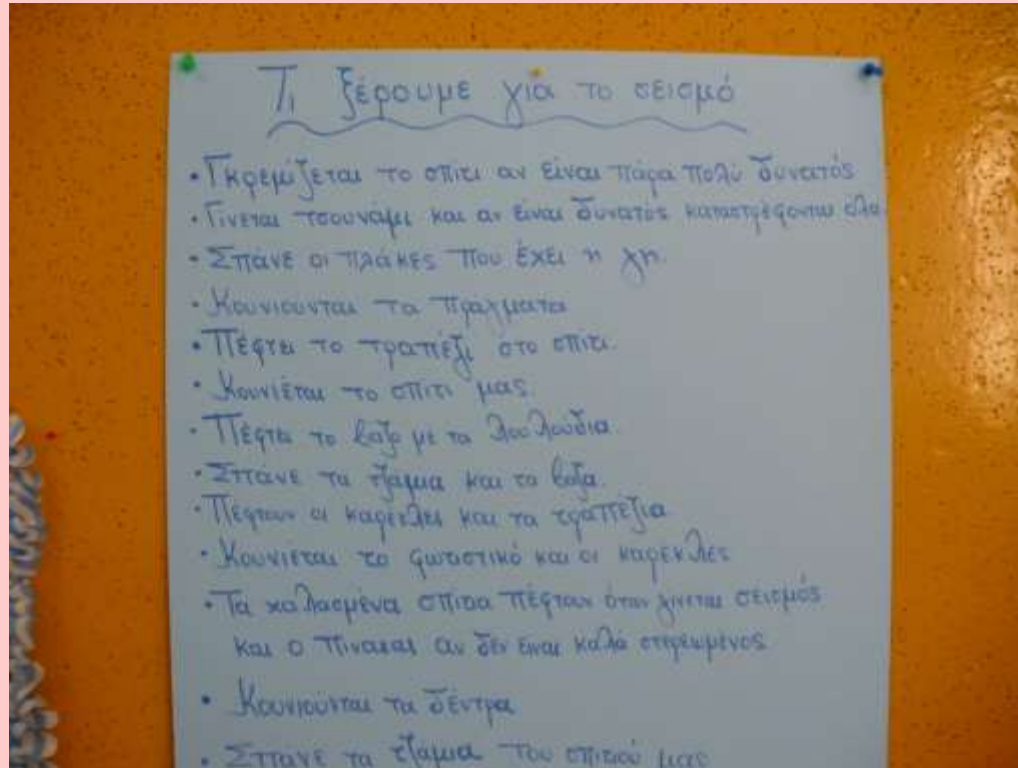 Τι ξέρουμε για το σεισμό
• Γκρεμίζεται το σπίτι αν είναι πάρα πολύ δυνατός
• Γίνεται τσουνάμι και αν είναι δυνατός καταστρέφονται όλα.
• Σπάνε οι πλάκες που έχει η γη.
• Κουνιούνται τα πράγματα
• Πέφτει το τραπέζι στο σπίτι.
• Κουνιέται το σπίτι μας.
• Πέφτει το βάζο με τα λουλούδια.
• Σπάνε τα τζάμια και τα βάζα.
• Πέφτουν οι καρέκλες και τα τραπέζια
• Κουνιέται το φωτιστικό και οι καρέκλες
• Τα χαλασμένα σπίτια πέφτουν όταν γίνεται σεισμός
και ο πίνακας αν δεν είναι καλά στερεωμένος
• Κουνιούνται τα δέντρα
• Σπάνε τα τζάμια του σπιτιού μας